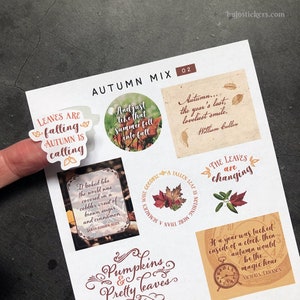 bujostickers.com
AUTUMN MIX 02
LEAVES ARE
falling
AUTUMN IS
calling
And just
like that
summer fell
into fall
Autumn...
the year's last,
loveliest smile.
William Cullen
It looked like
the world was
covered in a
cobbler crust of
brown sugar
and cinnamon.
THE LEAVES
are
changing
If a year was tucked
inside of a clock, then
autumn would
be the
magic hour
Pumpkins
&
Pretty leaves